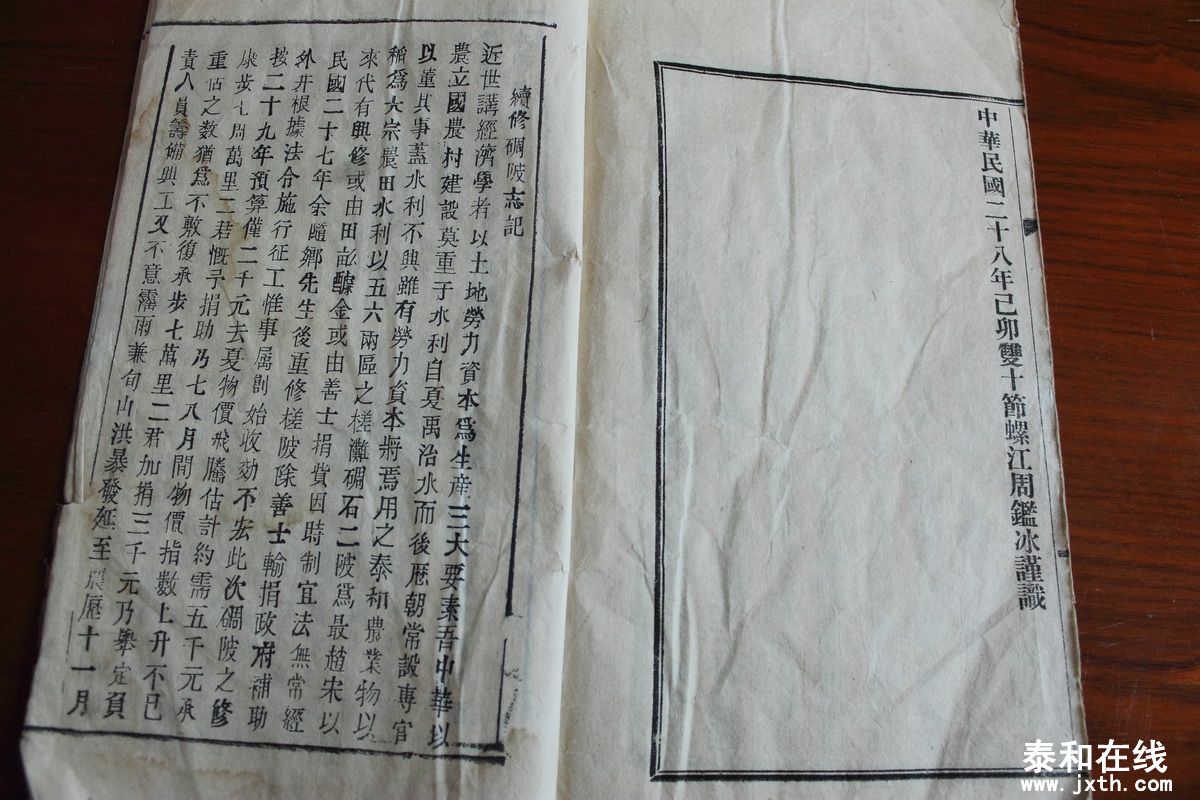 中華民國二十八年己卯雙十節螺江周鑑冰謹識
續修碉陂志記
近世講經濟學者以土地勞力資本爲生産三大要素吾中華以
農立國農村建設莫重于水利自夏禹治水而後歷朝常設專官
以董其事蓋水利不興雖有勞力資本將焉用之泰和農業物以
稱爲大宗農田水利以五六兩區之槎灘碉石二陂爲最趙宋以
來代有興修或由田畝醵金或由善士捐費因時制宜法無常經
民國二十七年余隨鄉先生後重修槎陂除善士輸捐政府補助
外并根據法令施行征工惟事属創始收効不宏此次碉陂之修
按二十九年預算僅二千元去夏物價飛騰估計約需五千元承
康步七周萬里二君慨予捐助乃七八月間物價指數上升不已
重估之数猶爲不敷復承步七萬里二君加捐三千元乃舉定負
責人員籌備興工又不意霪雨兼旬山洪暴發延至農厯十一月
泰和在线
www.jxth.com